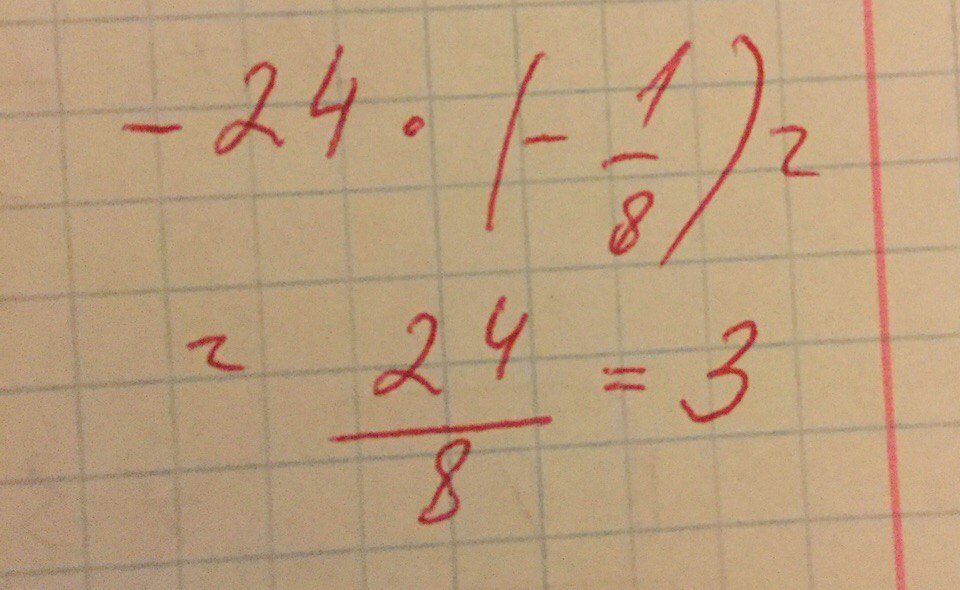 -24 · (- 1/8) =
= 24/8 = 3